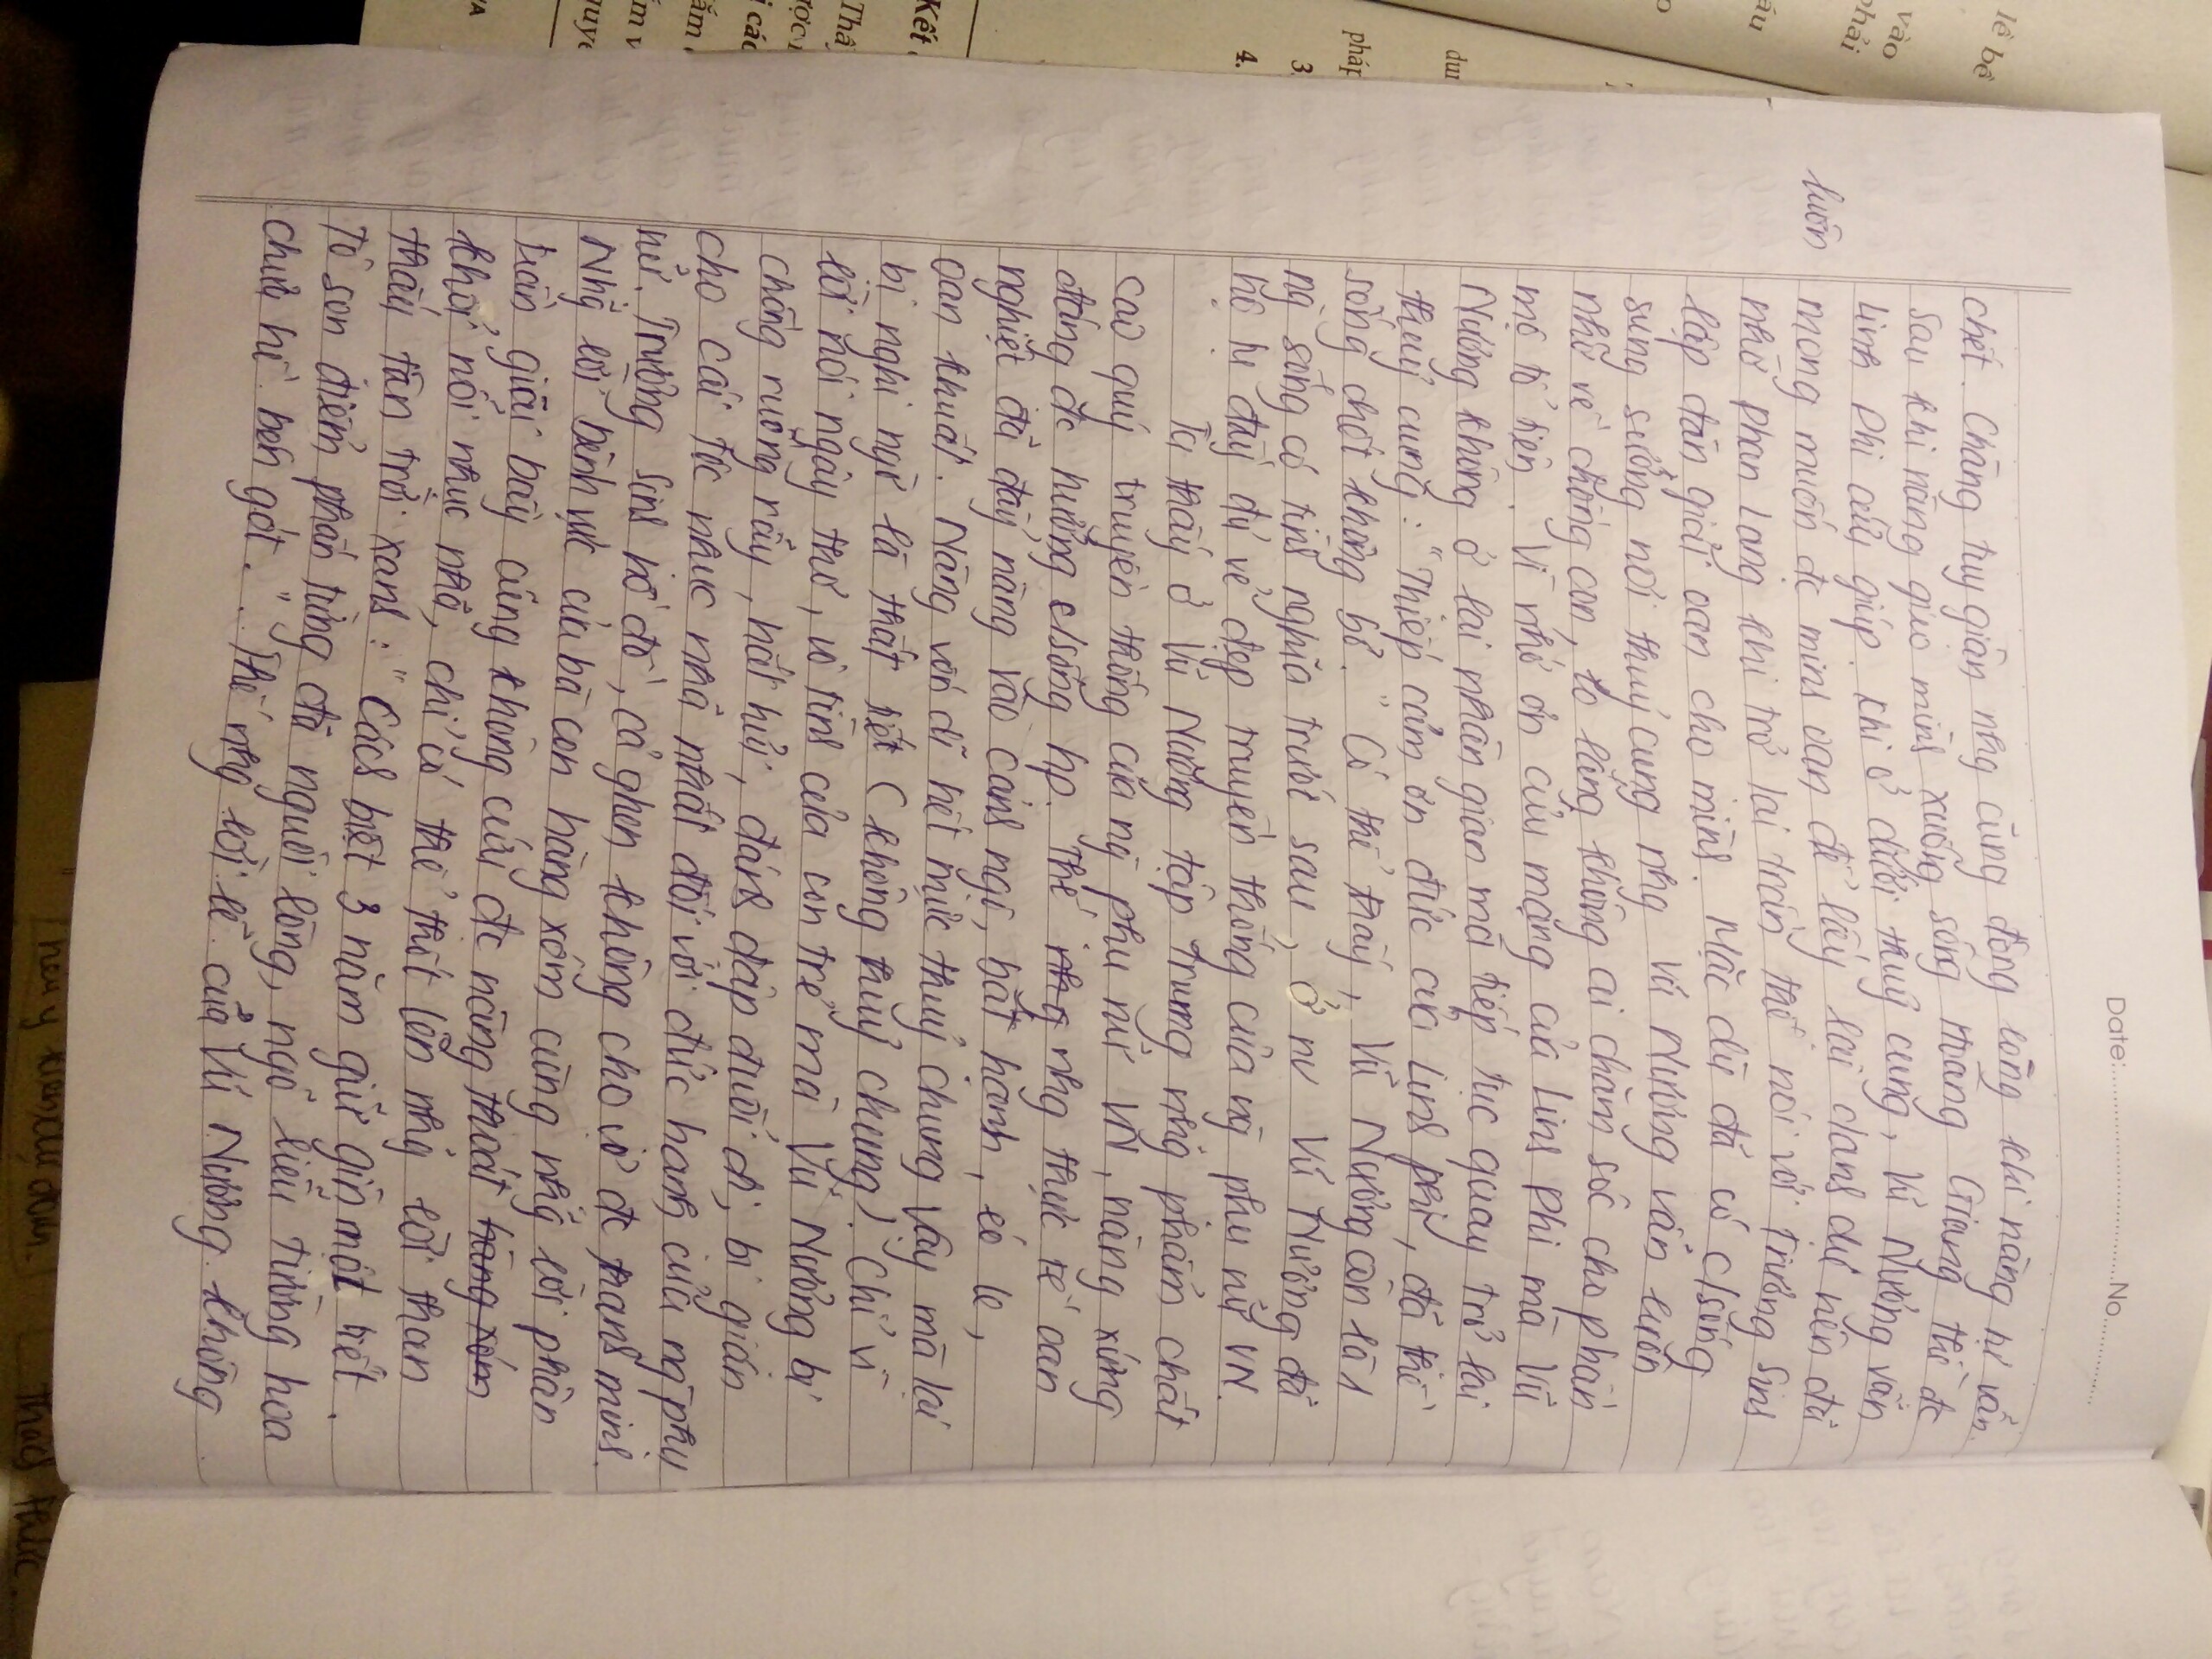 Date: No
chết. Chàng tuy giận nhg cũng động lòng khi nàng tự vẫn.
sau khi nàng gieo mình xuống sông Hoàng Giang thì đc
Linh Phi cứu giúp. Khi ở dưới thuỷ cung, Vũ Nương vẫn
mong muốn đc minh oan để lấy lại danh dự nên đã
nhờ Phan Lang khi trở lại trần thế nói với Trương Sinh
lập đàn giải oan cho mình. Mặc dù đã có c/sống
sung sướng nơi thuỷ cung nhg Vũ Nương vẫn luôn
luôn
nhớ về chồng con, lo lắng không ai chăm sóc cho phần
mộ tổ tiên. Vì nhớ ơn cứu mạng của Linh Phi mà Vũ
Nương không ở lại nhân gian mà tiếp tục quay trở lại
thuỷ cung: "Thiếp cảm ơn đức của Linh phi, đã thề
sống chết không bỏ." Có thể thấy, Vũ Nương còn là 1
ng sống có tình nghĩa trước sau, ở nv Vũ Nương đã
hội tụ đầy đủ vẻ đẹp truyền thống của ng phụ nữ VN.
Ta thấy ở Vũ Nương tập trung nhg phẩm chất
cao quý truyền thống của ng phụ nữ VN, nàng xứng
đáng đc hưởng c/sống hp. Thế nhg nhg thực tế oan
nghiệt đã đẩy nàng vào cảnh ngộ, bất hạnh, éo le,
oan khuất. Nàng vốn dĩ hết mực thuỷ chung vậy mà lại
bị nghi ngờ là thất tiết (không thuỷ chung). Chỉ vì
lời nói ngây thơ, vô tình của con trẻ mà Vũ Nương bị
chồng ruồng rẫy, hắt hủi, đánh đập đuổi đi, bị gián
cho cái tộc nhục nhã nhất đối với đức hạnh của ng phụ
nữ. Trương Sinh hồ đồ, cả ghen không cho vợ đc thanh minh.
Nhg lời bênh vực của bà con hàng xóm cùng nhg lời phân
trần giãi bày cũng không cứu đc nàng thoát hàng xóm
khỏi nỗi nhục nhã, chỉ có thể thốt lên nhg lời than
thấu tận trời xanh: "Cách biệt 3 năm giữ gìn một tiết.
Tô son điểm phấn từng đã nguôi lòng, ngõ liễu tường hoa
chưa hề bén gót." Thế nhg lời lẽ của Vũ Nương không